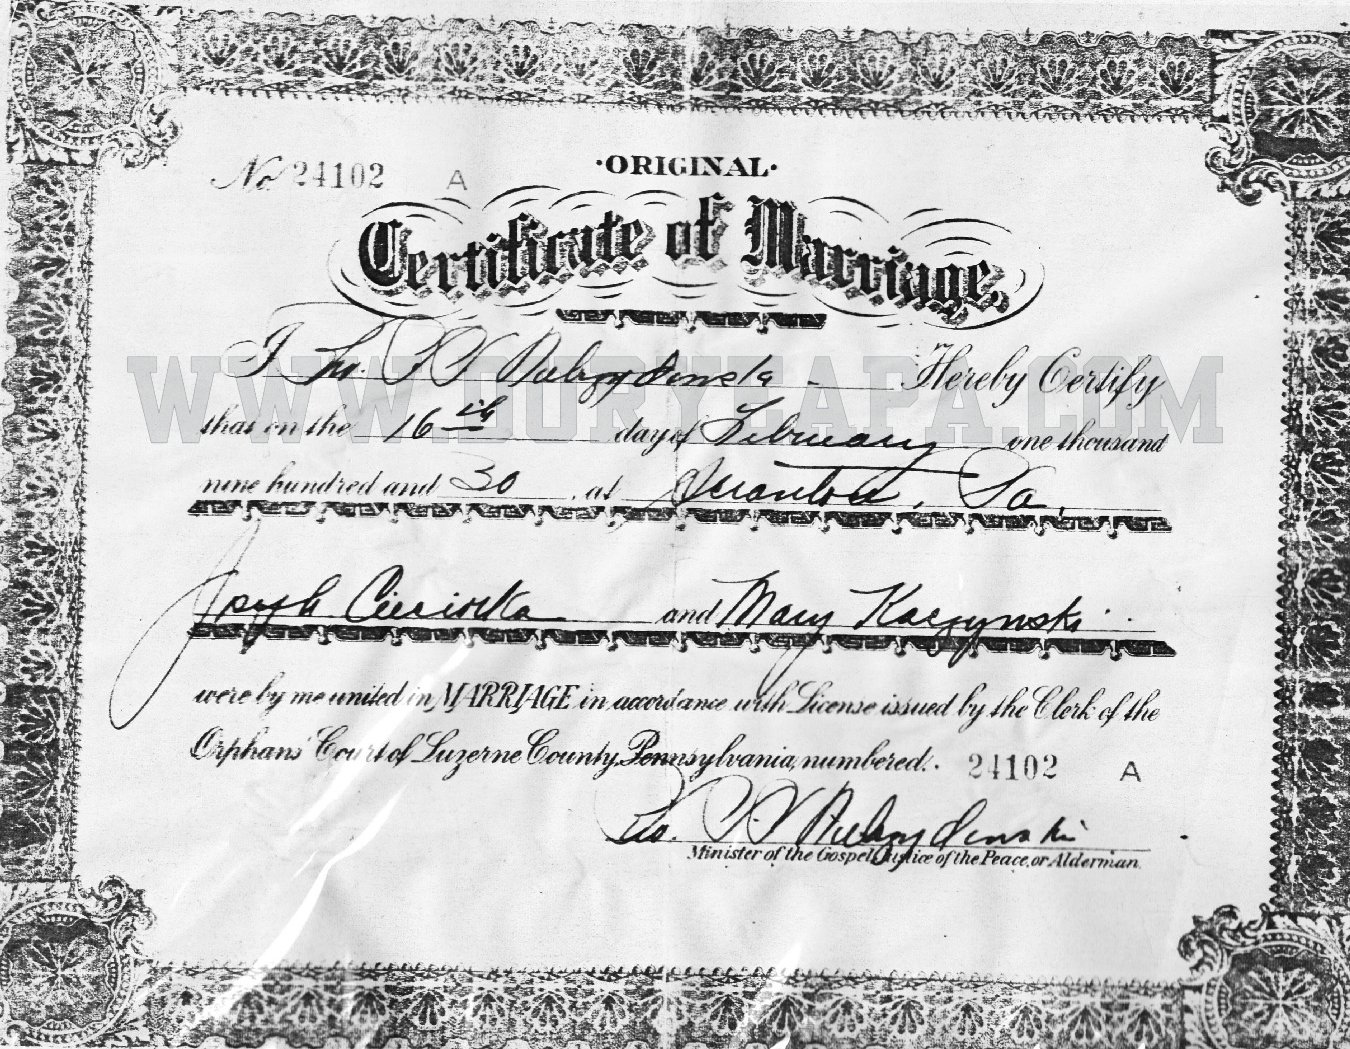 No 24102 A
·ORIGINAL·
Certificate of Marriage.
I Hereby Certify
WWW.DURYEAPA.COM
that on the 16th day of February one thousand
nine hundred and 30, at Scranton, Pa.
Joseph and Mary Kaczynski
were by me united in MARRIAGE in accordance with License issued by the Clerk of the
Orphans' Court of Luzerne County, Pennsylvania, numbered. 24102 A
Minister of the Gospel, Justice of the Peace, or Alderman.